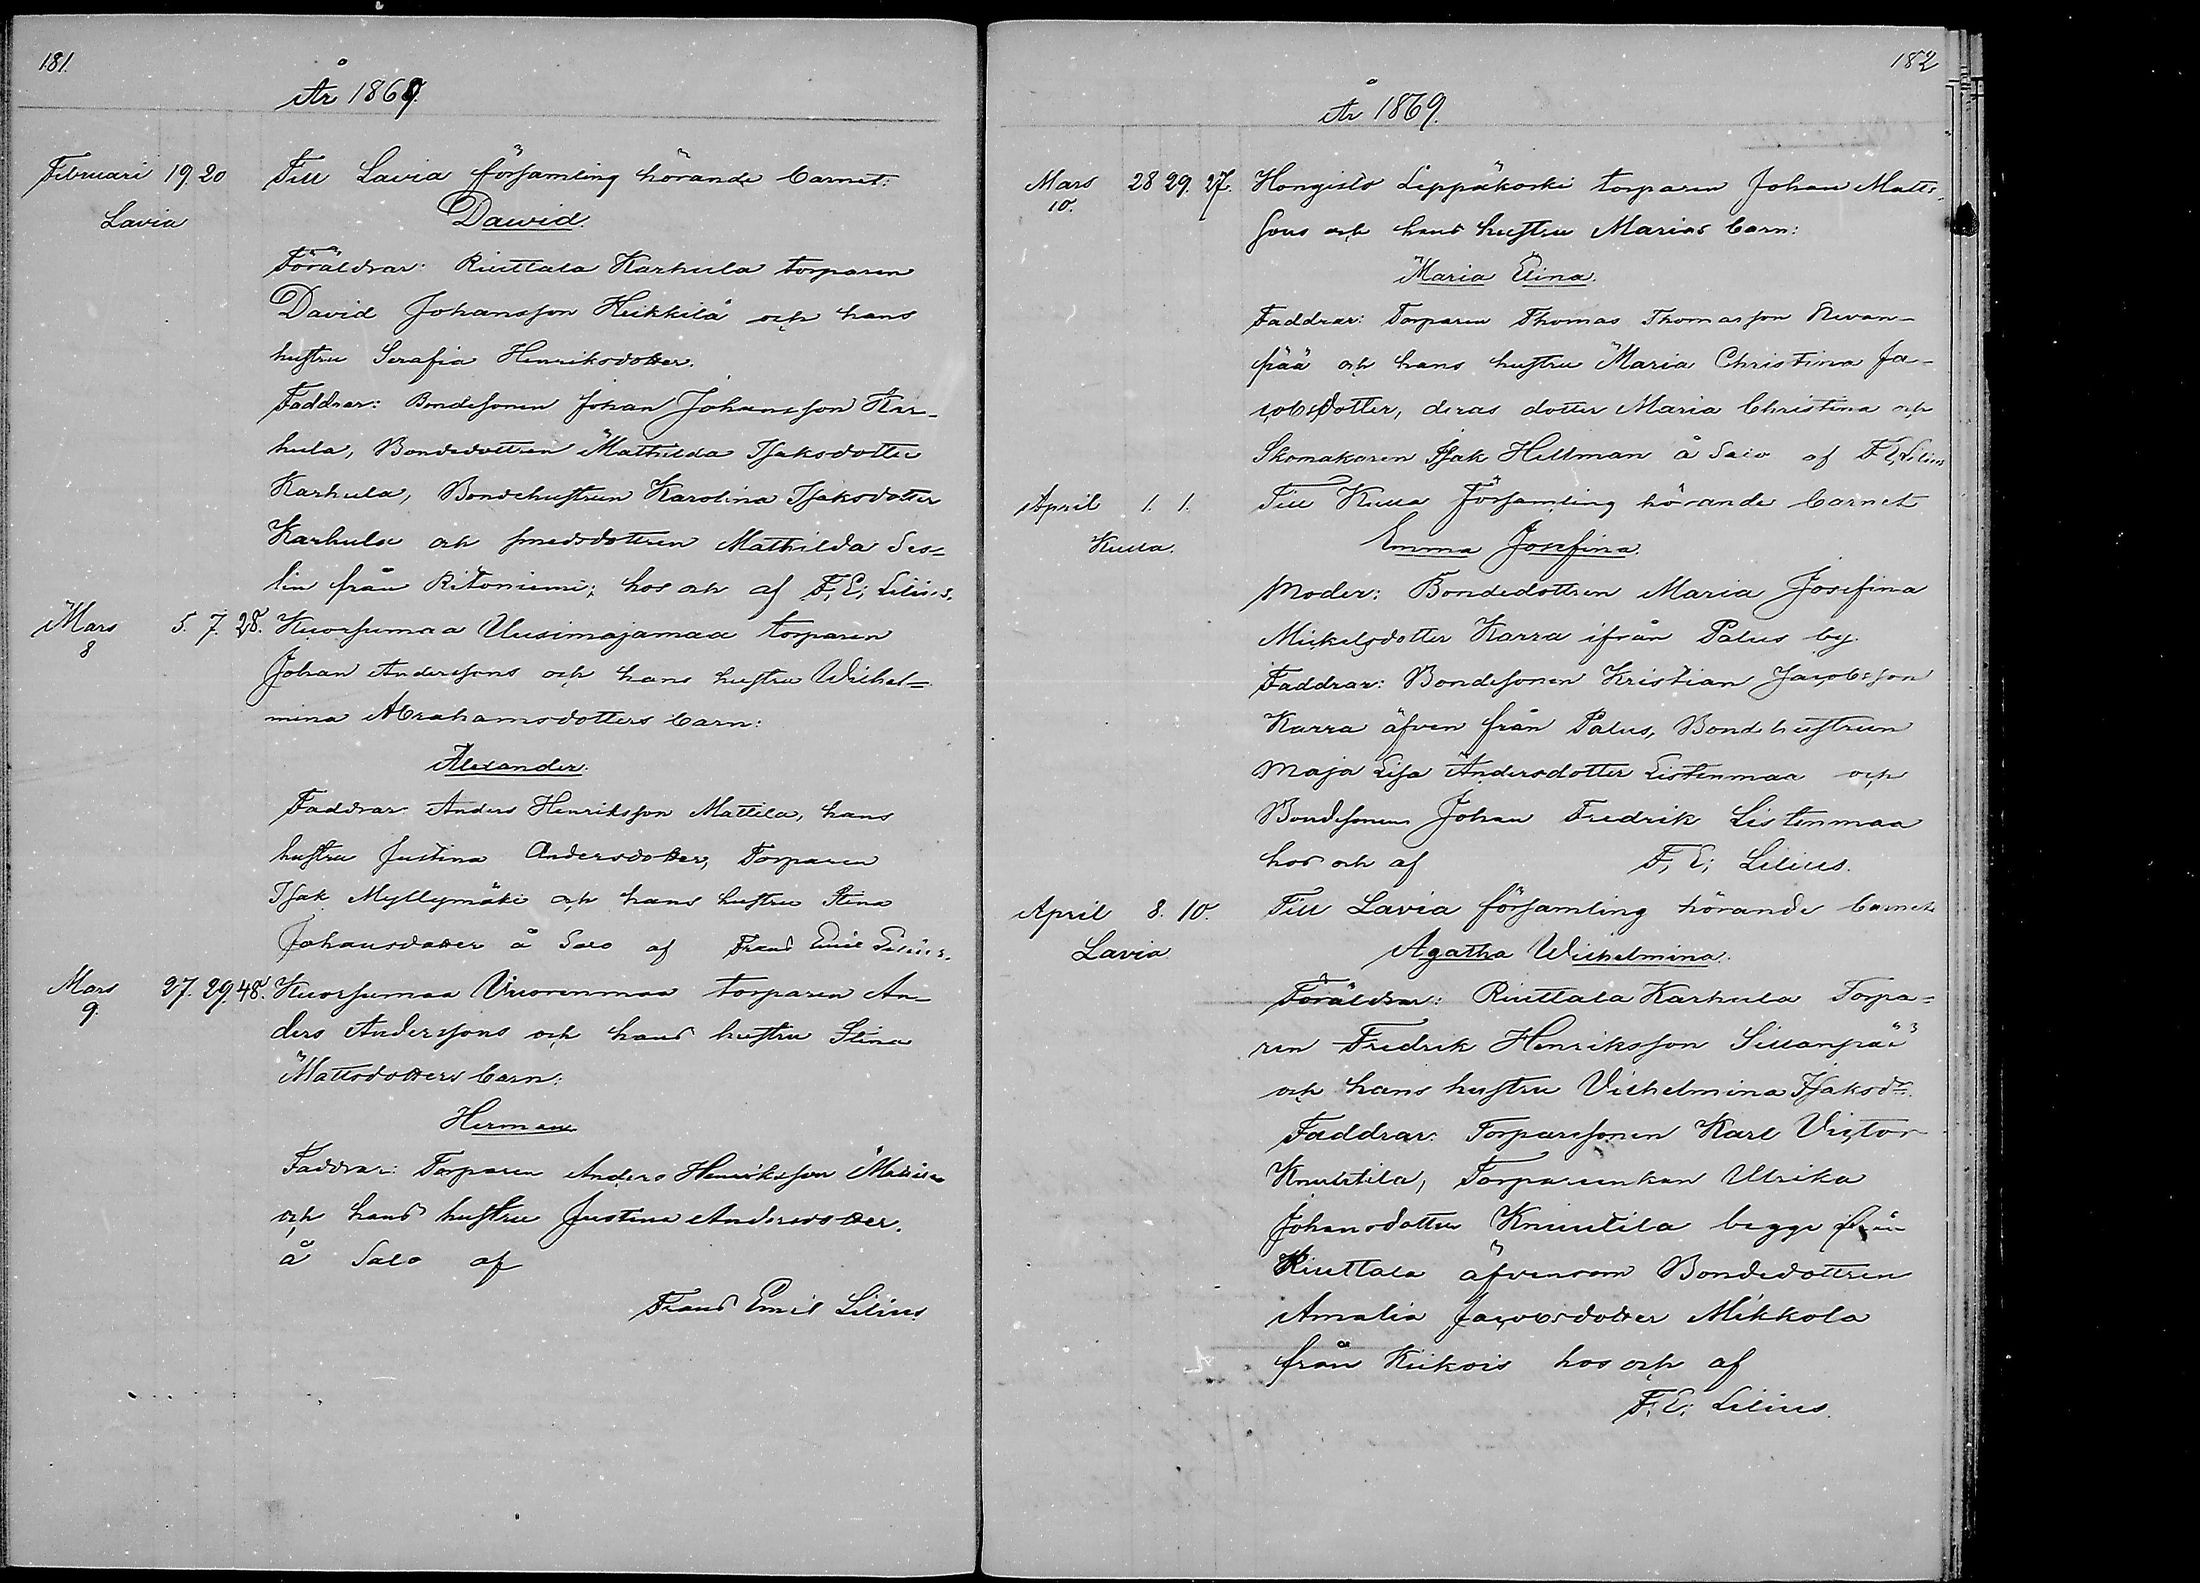 181.
År 1869.
Februari 19. 20 Till Lavia församling hörande barnet:
Lavia Dawid.
Föräldrar: Riuttala Karhula torparen
David Johansson Heikkilä och hans
hustru Serafia Henriksdotter.
Faddrar: Bondesonen Johan Johansson Kar-
hula, Bondedottren Mathilda Isaksdotter
Karhula, Bondehustrun Karolina Isaksdotter
Karhula och smedsdottren Mathilda Ses-
lin från Ritoniemi; hos och af F. E. Lilius.
Mars 5. 7. 28. Kuorsumaa Uusimajamaa torparen
8 Johan Anderssons och hans hustru Wilhel-
mina Abrahamsdotters barn:
Alexander.
Faddrar Anders Henriksson Mattila, hans
hustru Justina Andersdotter, Torparen
Isak Myllymäki och hans hustru Stina
Johansdotter å Salo af Frans Emil Lilius.
Mars 27. 29. 48. Kuorsumaa Vuorenmaa torparen An-
9. ders Anderssons och hans hustru Stina
Mattsdotters barn:
Herman
Faddrar: Torparen Anders Henriksson Mattila
och hans hustru Justina Andersdotter.
å Salo af
Frans Emil Lilius.
182
År 1869.
Mars 28 29. 27. Hongisto Leppäkoski torparen Johan Matts-
10. sons och hans hustru Marias barn:
Maria Elina.
Faddrar: Torparen Thomas Thomasson
pää och hans hustru Maria Christina Ja-
cobsdotter, deras dotter Maria Christina och
Skomakaren Isak Hellman å Salo af F. E. Lilius
April 1. 1. Till Kulla Församling hörande barnet
Kulla. Emma Josefina.
Moder: Bondedottren Maria Josefina
Mickelsdotter Karra ifrån Palus by.
Faddrar: Bondesonen Kristian Jacobsson
Karra äfven från Palus, Bondhustrun
Maja Lisa Andersdotter Listenmaa och
Bondesonen Johan Fredrik Listenmaa
hos och af F. E. Lilius.
April 8. 10. Till Lavia församling hörande barnet
Lavia Agatha Wilhelmina.
Föräldrar: Riuttala Karhula Torpa-
ren Fredrik Henriksson Sillanpää
och hans hustru Vilhelmina Isaksdr.
Faddrar: Torparesonen Karl Victor
Knuutila, Torparenkan Ulrika
Johansdotter Knuutila begge från
Riuttala äfvensom Bondedottren
Amalia Jacobsdotter Mikkola
från Kiikois hos och af
F. E. Lilius.